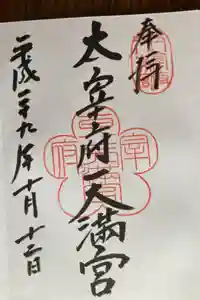 奉拝
太宰府天満宮
平成二十九年十月十二日